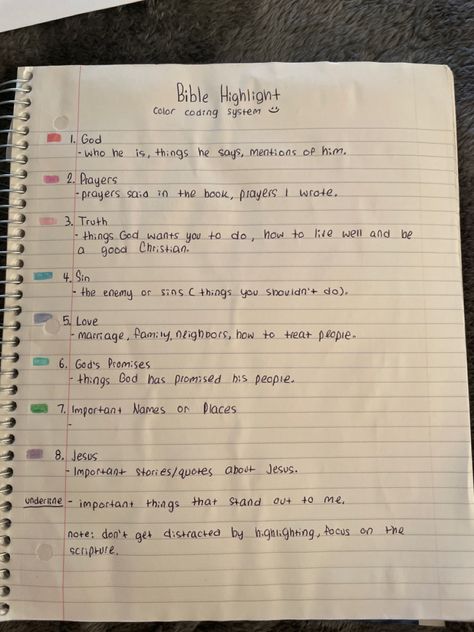 Bible Highlight
color coding system
1. God
- who he is, things he says, mentions of him.
2. Prayers
- prayers said in the book, prayers I wrote.
3. Truth
- things God wants you to do, how to live well and be
a good Christian.
4. Sin
- the enemy or sins (things you shouldn't do).
5. Love
- marriage, family, neighbors, how to treat people.
6. God's Promises
- things God has promised his people.
7. Important Names or Places
-
8. Jesus
- Important stories/quotes about Jesus.
underline - important things that stand out to me.
note: don't get distracted by highlighting, focus on the
scripture.